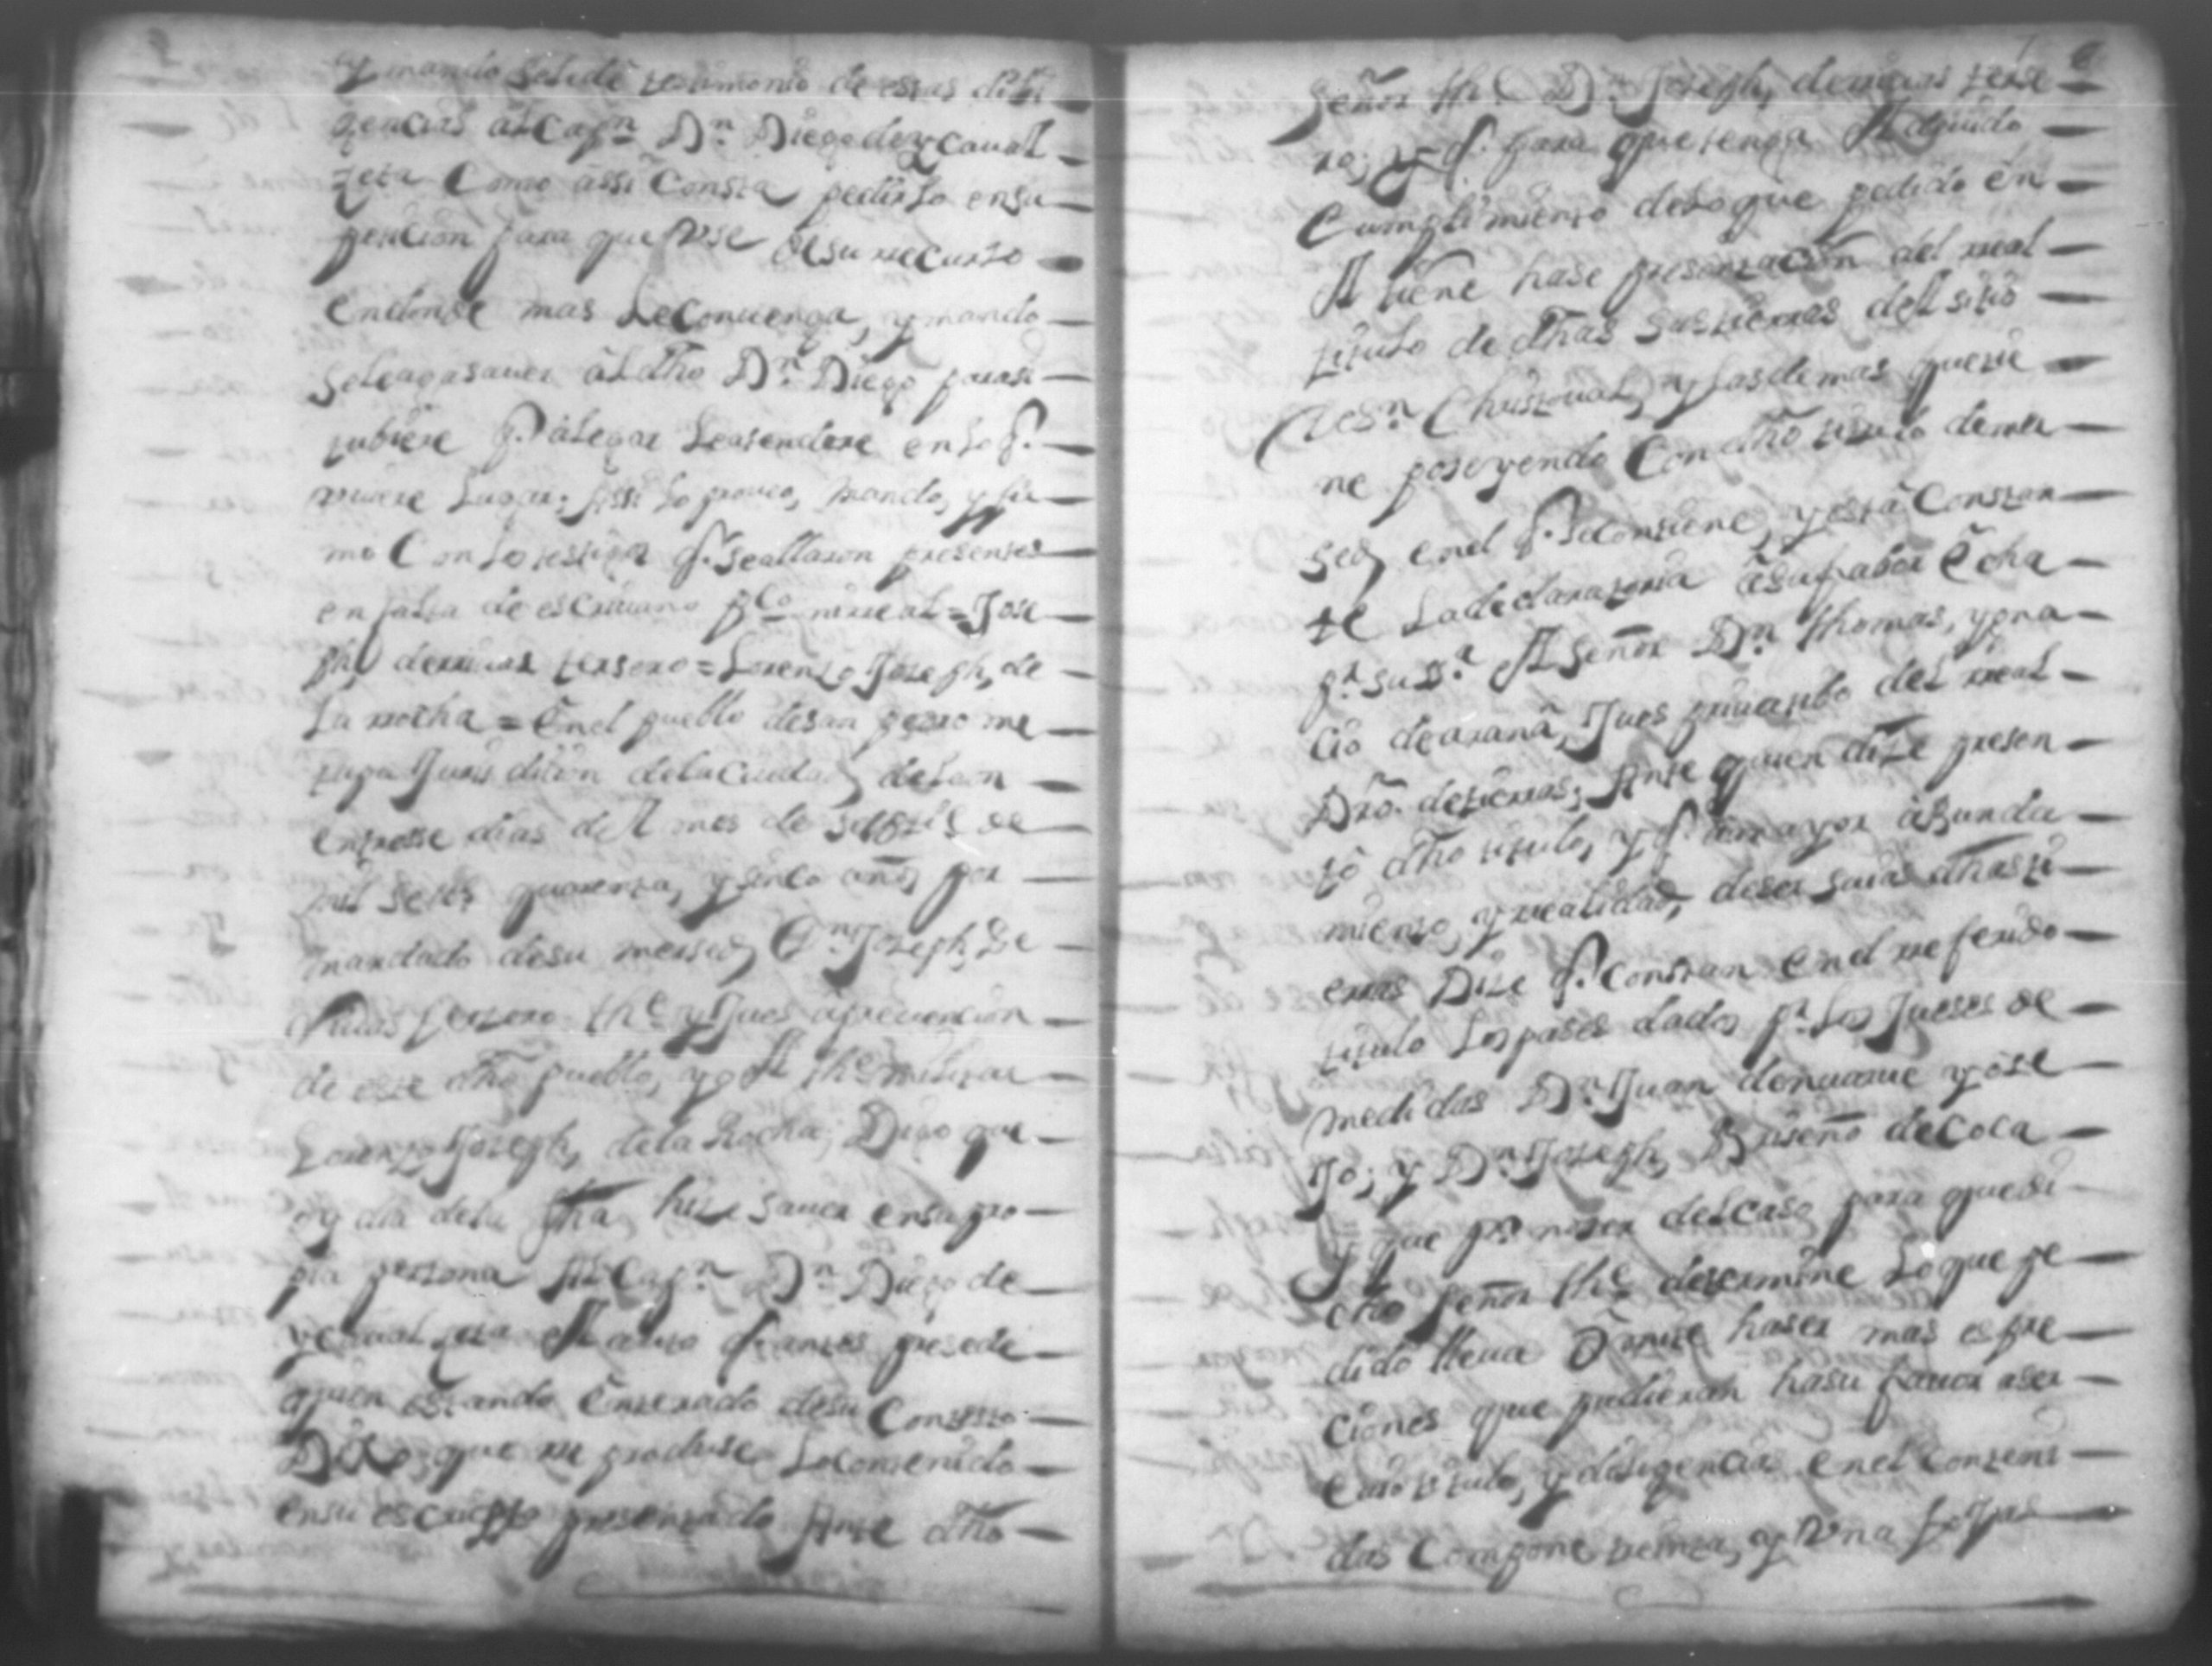 y mando sele dè testimonio de estas dili
gencias al Capn. Dn. Diego de ycaual
zeta Como assi Consta pedirlo ensu
peticion para que vse desu recurso
endonde mas Le Conuenga, y mando
seleaga sauer âl dho Dn. Diego para si
tubiere q. àlegar Leatendere en lo q.
vuiere Lugar; Assi lo proueo, mando, y fir
mo Con los testigos q. seallaron presentes
en falta de escriuano pco. ni real = Jose
ph, derriuas tersero = Lorenzo Joseph, de
La rrocha = Enel pueblo desan pedro me
tapa Jurisdiсion dela Ciudad de Leon
entresse dias del mes de
mil setts. quarenta, y sinco años por
mandado desu mersed Dn. Joseph, de
Riuas tersero the. y Jues àpreuencion
de este dho pueblo, yo el the. militar
Lorenzo Joseph, dela Rocha; Digo que
oy dia dela fha hize sauer ensu pro
pia persona Al Capn. Dn. Diego de
ycaual zeta el auto q. antes presede
quien estando Enterado desu Contesto
Dixo, que re produse Lo contenido
ensu escripto presentado Ante dho
señor the. Dn. Joseph, derriuas terse
ro; y q. para que tenga el deuido
Cumplimiento delo que pedido en
el tiene hase presentacion del real
titulo de dhas sus tierras del sitio
de Sn. Christoual, y las demas que tie
ne poseyendo Con dho titulo demer
sed enel q. se Contiene, y està Constan
te La declaratoria âsu fabor Echa
pr. su sa. el Señor Dn. thomas, ygna
cio de arana, Jues priuatibo del real
Dro. de tierras; Ante quien dize presen
tò dho titulo, y q. a mayor àbunda
miento, y realidad, deser suias dhas ti
erras Dize q. Constan enel referido
titulo Los pases dados pr. los Jueses de
medidas Dn. Juan
Jo; y Dn. Joseph, Briseño de Coca
y que pr. no ser del caso para que di
cho señor the. determine Lo que pe
dido lleua Omite haser mas espre
ciones que pudieran hasu fauor aser
Cuio titulo, y diligencias enel Conteni
das Compone treinta, y vna fojas